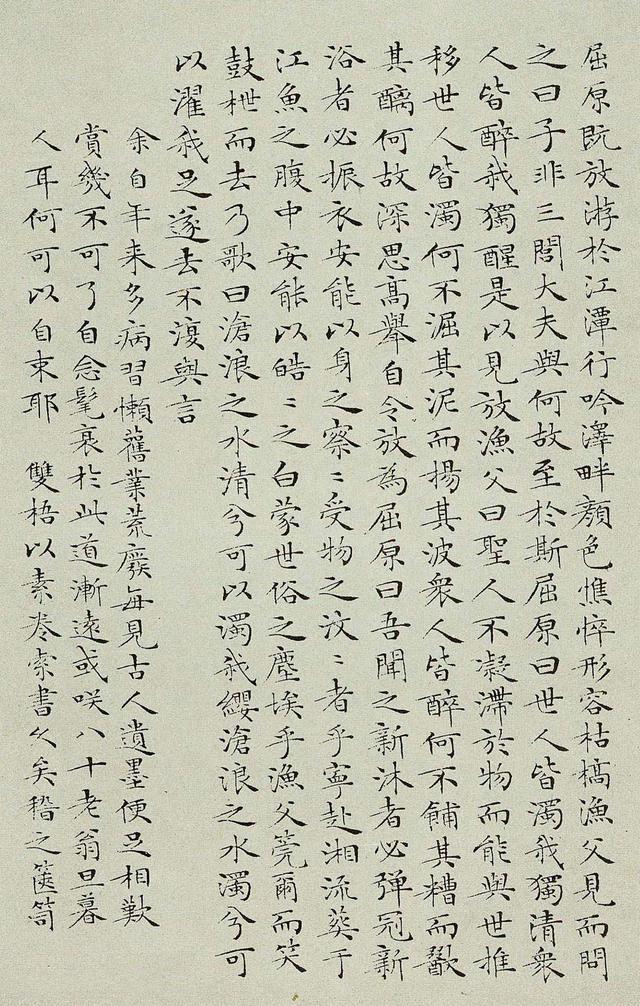 屈原既放游於江潭行吟澤畔顏色憔悴形容枯槁漁父見而問
之曰子非三閭大夫與何故至於斯屈原曰世人皆濁我獨清衆
人皆醉我獨醒是以見放漁父曰聖人不凝滯於物而能與世推
移世人皆濁何不淈其泥而揚其波衆人皆醉何不餔其糟而歠
其醨何故深思高舉自令放爲屈原曰吾聞之新沐者必彈冠新
浴者必振衣安能以身之察〻受物之汶〻者乎寧赴湘流葬于
江魚之腹中安能以皓〻之白蒙世俗之塵埃乎漁父莞爾而笑
鼓枻而去乃歌曰滄浪之水清兮可以濯我纓滄浪之水濁兮可
以濯我足遂去不復與言
余自年来多病習懶舊業荒廢每見古人遺墨便足相歎
賞幾不可了自念髦衰於此道漸遠或咲八十老翁旦暮
人耳何可以自束耶 雙梧以素卷索書久矣稽之篋笥